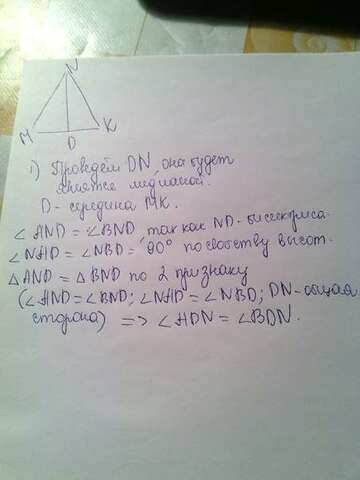 N
M
K
D
1) Проведём DN, она будет
также медианой.
D - середина MK.
∠AND = ∠BND, так как ND - биссектриса
∠NAD = ∠NBD = 90° по свойству высот.
△AND = △BND по 2 признаку
(∠AND = ∠BND; ∠NAD = ∠NBD; DN - общая
сторона) => ∠ADN = ∠BDN.